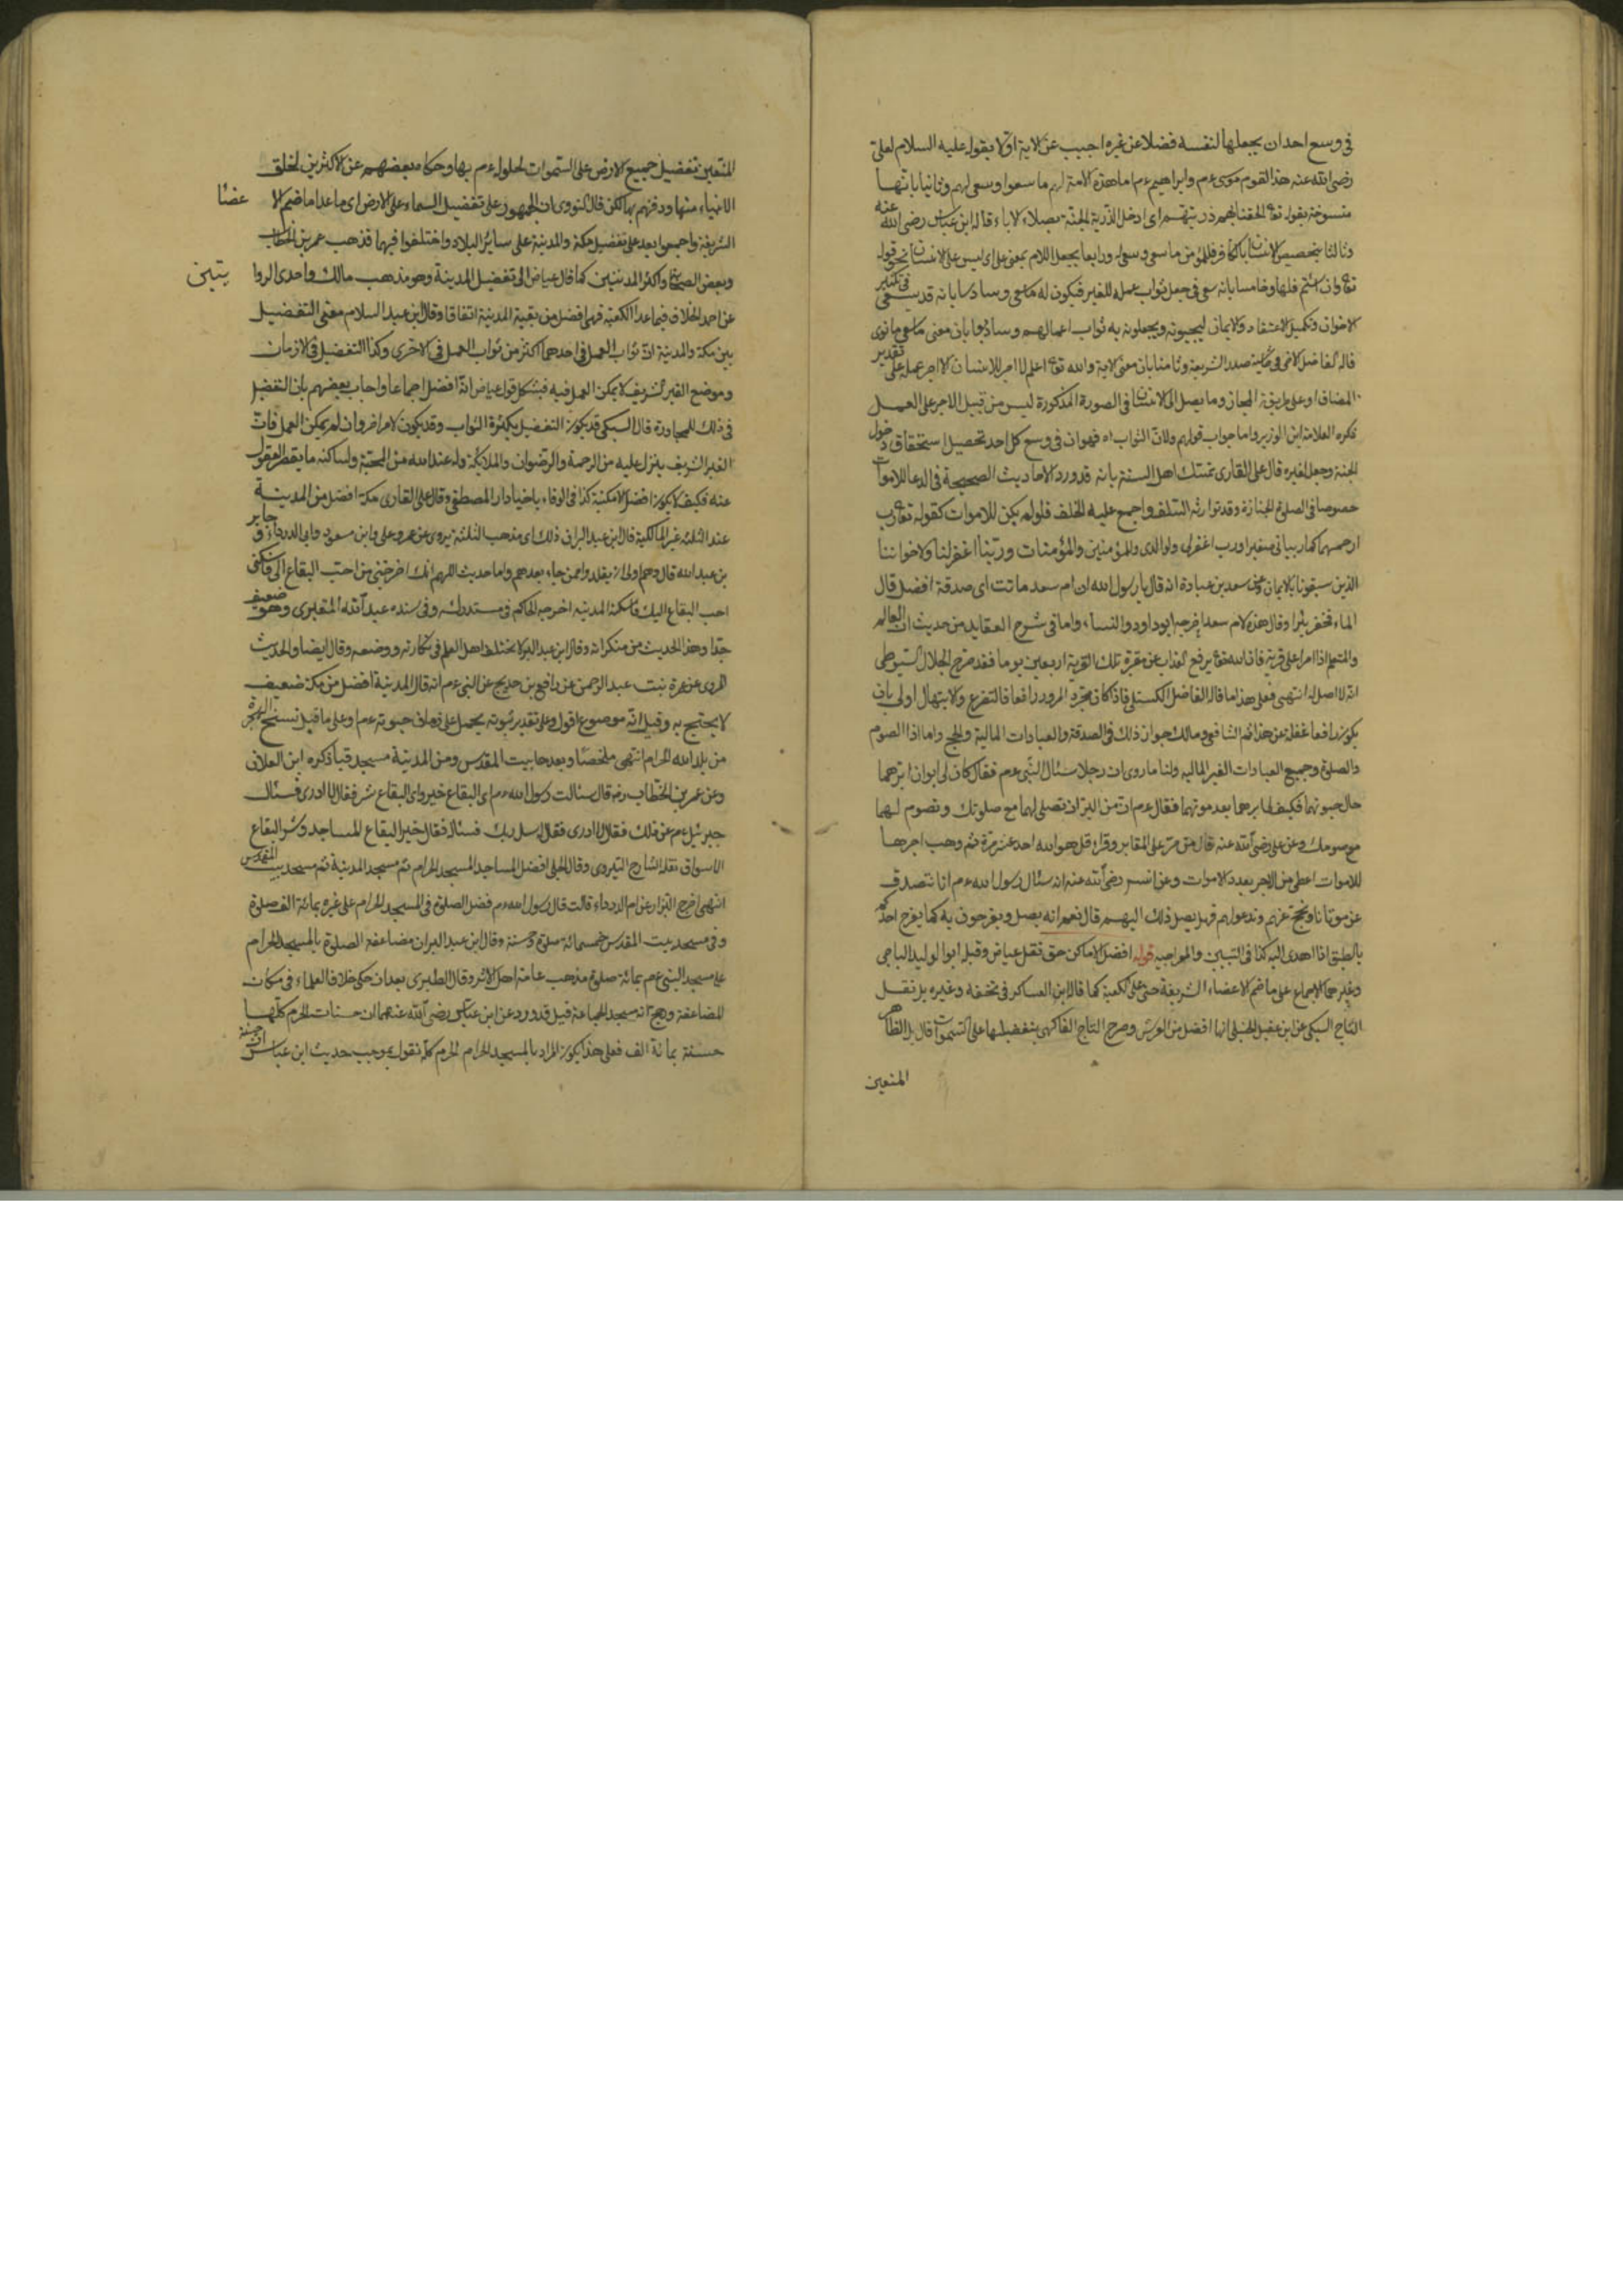 فى وسع احد ان يجعلها لنفسه فضلا عن غيره اجيب عن الاية اولا بقوله عليه السلام لعلى
رضى الله عنه هذا لقوم موسى عم وابراهيم عم اما هذه الامة لهم ما سعوا وسعى لهم وثانيا بانها
منسوخة بقوله تع الحقنا بهم ذريتهم اى ادخل الذرية الجنة بصلاء الاباء قاله ابن عباس رضى الله عنه
وثالثا بتخصيص الانسان بالكافر فللمؤمن ما سعى وسعى له ورابعا بجعل اللام بمعنى على اى ليس على الانسان نحو قوله
تع وان اسأتم فلها وخامسا بانه سعى فى جعل ثواب عمله للغير فيكون له ما سعى وسادسا بانه قد يسعى فى تكثير
الاخوان وتكميل الاعتقاد والايمان ليحبونه ويجعلون به ثواب اعمالهم وسابعا بان معنى ما سعى ما نوى
قاله الفاضل فى حاشية صدر الشريعة وثامنا بان معنى الاية والله تع اعلم لا اجر للانسان الا اجر عمله على تقدير
المضاف او على طريقة المجاز وما يصل الى الانسان فى الصورة المذكورة ليس من قبيل الاجر على العمل
ذكره العلامة ابن الوزير واما جواب قولهم ولان الثواب اه فهو ان فى وسع كل احد تحصيل استحقاق دخول
الجنة وجعل لغيره قال على القارى تمسك اهل السنة بانه قد ورد الاحاديث الصحيحة فى الدعا للاموات
خصوصا فى الصلوة الجنازة وقد توارثه السلف واجمع عليه الخلف فلو لم يكن للاموات كقوله تع رب
ارحمهما كما ربيانى صغيرا ورب اغفر لى ولوالدى وللمؤمنين والمؤمنات وربنا اغفر لنا ولاخواننا
الذين سبقونا بالايمان وعن سعد بن عبادة انه قال يا رسول الله ان ام سعد ماتت اى صدقة افضل قال
الماء فحفر بئرا وقال هذه لام سعد اخرجه ابو داود والنساء واما فى شرح العقايد من حديث ان العالم
والمتعلم اذا مرا على قرية فان الله تع يرفع العذاب عن مقبرة تلك القرية اربعين يوما فقد صرح الجلال السيوطى
انه لا اصل له انتهى فعلى هذا ما قاله الفاضل الكستلى فاذا كان مجرد المرور رافعا فالتضرع والابتهال اولى بان
يكون رافعا غفلة عن هذا ثم الشافعى ومالك جوازا ذلك فى الصدقة والعبادات المالية والحج واما اذا الصوم
والصلوة وجميع العبادات الغير المالية ولنا ما روى ان رجلا سئال النبى عم فقال كان لى ابوان ابرهما
حال حيوتهما فكيف لى ببرهما بعد موتهما فقال عم ان من البر ان تصلى لهما مع صلوتك وتصوم لهما
مع صومك وعن على رضى الله عنه قال من مر على المقابر وقراء قل هو الله احد عشر مرة ثم وهب اجرها
للاموات اعطى من الاجر بعدد الاموات وعن انس رضى الله عنه انه سئال رسول الله عم انا نتصدق
عن موتانا ونحج عنهم وندعو لهم فهل يصل ذلك اليهم قال نعم انه يصل ويفرحون به كما يفرح احدكم
بالطبق اذا اهدى اليه كذا فى التبيين قوله افضل الاماكن حق نقل عياض وقبله ابو الوليد الباجى
وغيرهما الاجماع على ما ضم الاعضاء الشريفة حتى على الكعبة كما قال ابن العساكر فى تحفته وغيره بل نقل
التاج السبكى عن ابن عقيل الحنبلى انها افضل من العرش وصرح التاج الفاكهى بتفضيلها على السموات قال بل الظاهر
المتعين
المتعين تفضيل جميع الارض على السموات لحلوله عم بها وحكاه بعضهم عن الاكثرين لخلق
الانبياء منها ودفنهم بها لكن قال النووى ان الجمهور على تفضيل السماء على الارض اى ما عدا ما ضم الا
عضا
الشريفة واجمعوا بعد على تفضيل مكة والمدينة على سائر البلاد واختلفوا فيهما فذهب عمر بن الخطاب
وبعض الصحابة واكثر المدنيين كما قال عياض الى تفضيل المدينة وهو مذهب مالك واحدى الروا
يتين
عن احمد والخلاف فيما عدا الكعبة فهى افضل من بقية المدينة اتفاقا وقال ابن عبد السلام معنى التفضيل
بين مكة والمدينة ان ثواب العمل فى احدهما اكثر من ثواب العمل فى الاخرى وكذا التفضيل فى الازمان
وموضع القبر الشريف لا يمكن العمل فيه فيشكل قول عياض انه افضل اجماعا واجاب بعضهم بان التفضيل
فى ذلك للمجاورة قال السبكى قد يكون التفضيل بكثرة الثواب وقد يكون لامر اخر وان لم يمكن العمل فان
القبر الشريف ينزل عليه من الرحمة والرضوان والملائكة وله عند الله من المحبة ولساكنه ما يقصر العقول
عنه فكيف لا يكون افضل الامكنة كذا فى الوفاء باخبار دار المصطفى وقال على القارى مكة افضل من المدينة
عند الثلثة غير المالكية قال ابن عبد البر ان ذلك اى مذهب الثلثة يروى عن عمر وعلى وابن مسعود وابى الدرداء وجابر
بن عبد الله قال وهم اولى ان يقلد وا ممن جاء بعدهم واما حديث اللهم انك اخرجتنى من احب البقاع الى فاسكنى
احب البقاع اليك فاسكنه المدينة اخرجه الحاكم فى مستدركه وفى سنده عبد الله المقبرى وهو ضعيف
جدا وهذا الحديث من منكراته وقال ابن عبد البر لا يختلف اهل العلم فى نكارته ووضعه وقال ايضا والحديث
المروى عن عمرة بنت عبد الرحمن عن رافع بن خديج عن النبى عم انه قال المدينة افضل من مكة ضعيف
لا يحتج به وقيل انه موضوع اقول وعلى تقدير ثبوته يحمل على زمان حيوته عم وعلى ما قبل نسخ الهجرة
من بلد الله الحرام انتهى ملخصا وبعدها بيت المقدس ومن المدينة مسجد قبا ذكره ابن العلان
وعن عمر بن الخطاب رضه قال سئالت رسول الله عم اى البقاع خير واى البقاع شر فقال لا ادرى فسئال
جبرئيل عم عن ذلك فقال لا ادرى فقال سل ربك فسئاله فقال خير البقاع المساجد وشر البقاع
الاسواق نقله الشارح وقال الحلبى افضل المساجد المسجد الحرام ثم مسجد المدينة ثم مسجد بيت المقدس
انتهى اخرج البزار عن ام الدرداء قالت قال رسول الله عم فضل الصلوة فى المسجد الحرام على غيره بمائة الف صلوة
وفى مسجد بيت المقدس خمسمائة صلوة وقال ابن عبد البر ان مضاعفة الصلوة بالمسجد الحرام
على مسجد النبى عم بمائة صلوة مذهب عامة اهل الاثر وقال الطبرى بعد ان حكى خلاف العلماء فى مكان
المضاعفة ورجح انه مسجد الجماعة قيل قد ورد عن ابن عباس رضى الله عنهما ان حسنات الحرم كلها
حسنة بمائة الف فعلى هذا يكون المراد بالمسجد الحرام الحرم كله نقول بموجب حديث ابن عباس